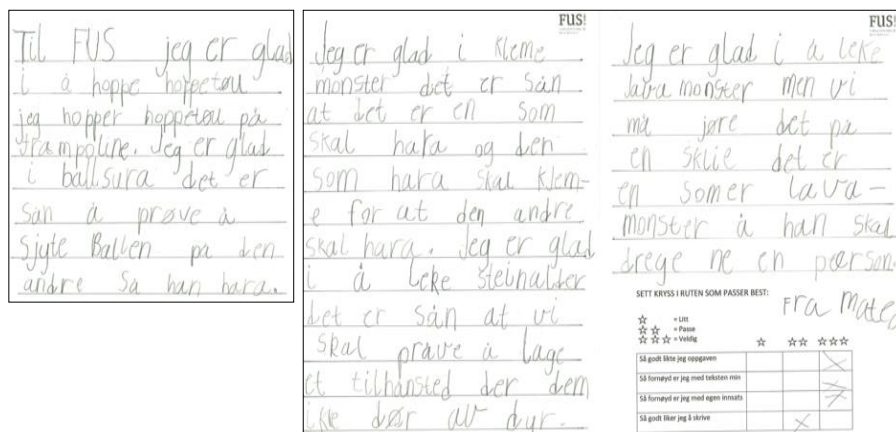 Til FUS jeg er glad
i å hoppe hoppetøu
jeg hopper hoppetøu på
trampoline. Jeg er glad
i ballsura det er
sån å prøve å
sjyte Ballen på den
andre så han hara.
FUS
Jeg er glad i kleme
monster det er sån
at det er en som
skal hara og den
som hara skal klem-
e for at den andre
skal hara. Jeg er glad
i å leke steinalder
det er sån at vi
skal prøve å lage
et tilhånsted der dem
ike dør av dyr.
FUS
Jeg er glad i å leke
lava monster men vi
må jøre det på
en sklie det er
en somer lava-
monster å han skal
drege ne en pærson.
Fra Mateo
SETT KRYSS I RUTEN SOM PASSER BEST:
☆ = Litt
☆☆ = Passe
☆☆☆ = Veldig
☆ ☆☆ ☆☆☆
Så godt likte jeg oppgaven
Så fornøyd er jeg med teksten min
Så fornøyd er jeg med egen innsats
Så godt liker jeg å skrive